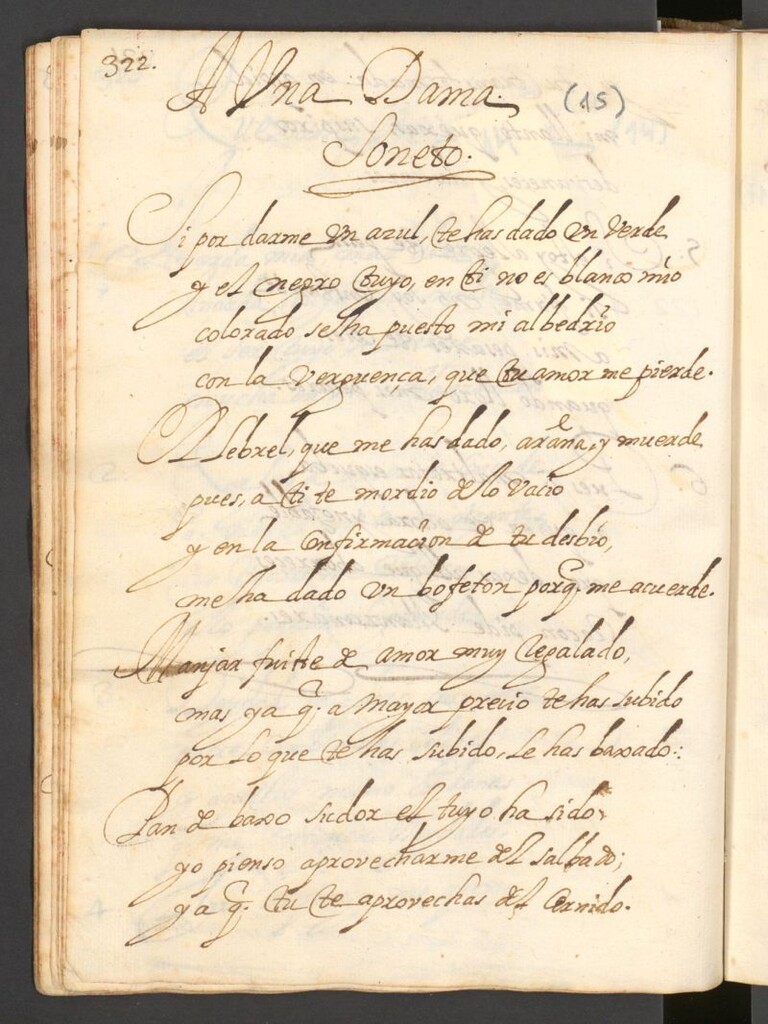 322.
A Vna Dama. (15)
Soneto.
Si por darme vn azul, te has dado vn verde
y el negro tuyo, en ti no es blanco mio
colorado se ha puesto mi albedrio
con la verguenca, que tu amor me pierde.
El lebrel, que me has dado, araña, y muerde
pues, a ti te mordio de lo vacio
y en la confirmacion de tu desbio,
me ha dado vn bofeton porq. me acuerde.
Manjar fuiste de amor muy regalado,
mas ya q. a mayor precio te has subido
por lo que te has subido, le has baxado:
Pan de baxo sudor el tuyo ha sido,
yo pienso aprovecharme del salbado;
ya q. tu te aprovechas del cernido.